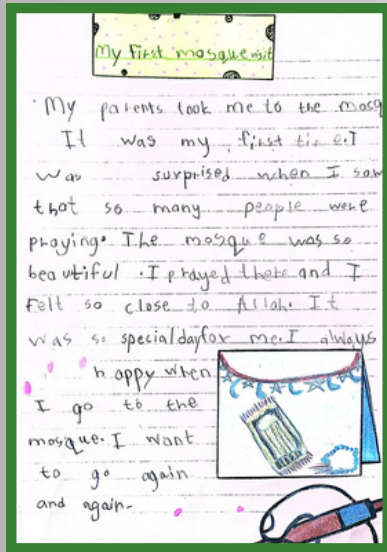 My first mosque visit
My parents took me to the mosq
It was my first time.I
was surprised when I saw
that so many people were
praying. The mosque was so
beautiful .I prayed there and I
Felt so close to Allah. It
was so special day for me.I always
happy when
I go to the
mosque. I want
to go again
and again.